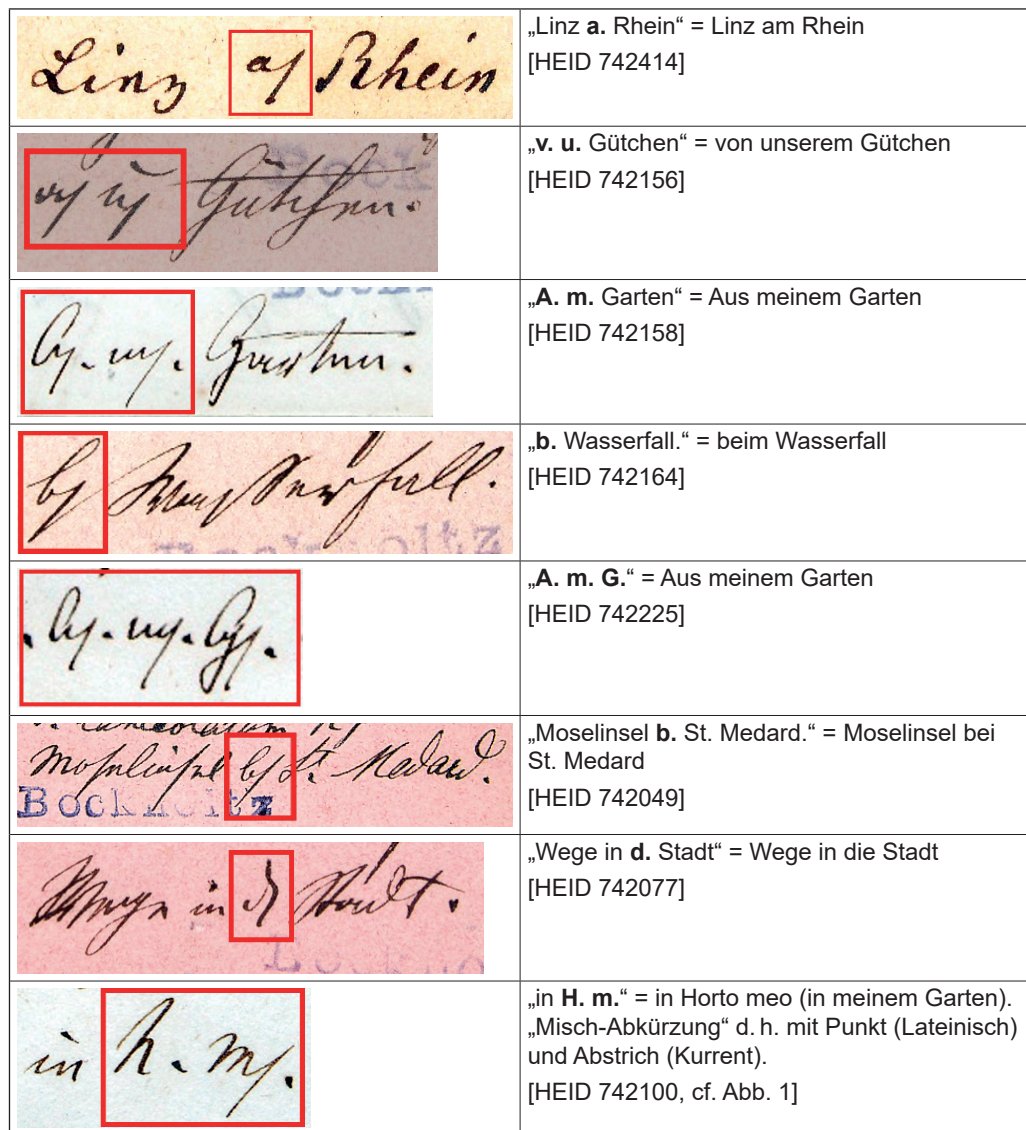 Linz a/ Rhein
„Linz a. Rhein“ = Linz am Rhein
[HEID 742414]
v/ u/ Gütchen.
„v. u. Gütchen“ = von unserem Gütchen
[HEID 742156]
A/. m/. Garten.
„A. m. Garten“ = Aus meinem Garten
[HEID 742158]
b/ Wasserfall.
„b. Wasserfall.“ = beim Wasserfall
[HEID 742164]
A/. m/. G/.
„A. m. G.“ = Aus meinem Garten
[HEID 742225]
Moselinsel b/ St. Medard.
Bockholtz
„Moselinsel b. St. Medard.“ = Moselinsel bei
St. Medard
[HEID 742049]
Wege in d/ Stadt.
„Wege in d. Stadt“ = Wege in die Stadt
[HEID 742077]
in H. m/.
„in H. m.“ = in Horto meo (in meinem Garten).
„Misch-Abkürzung“ d. h. mit Punkt (Lateinisch)
und Abstrich (Kurrent).
[HEID 742100, cf. Abb. 1]